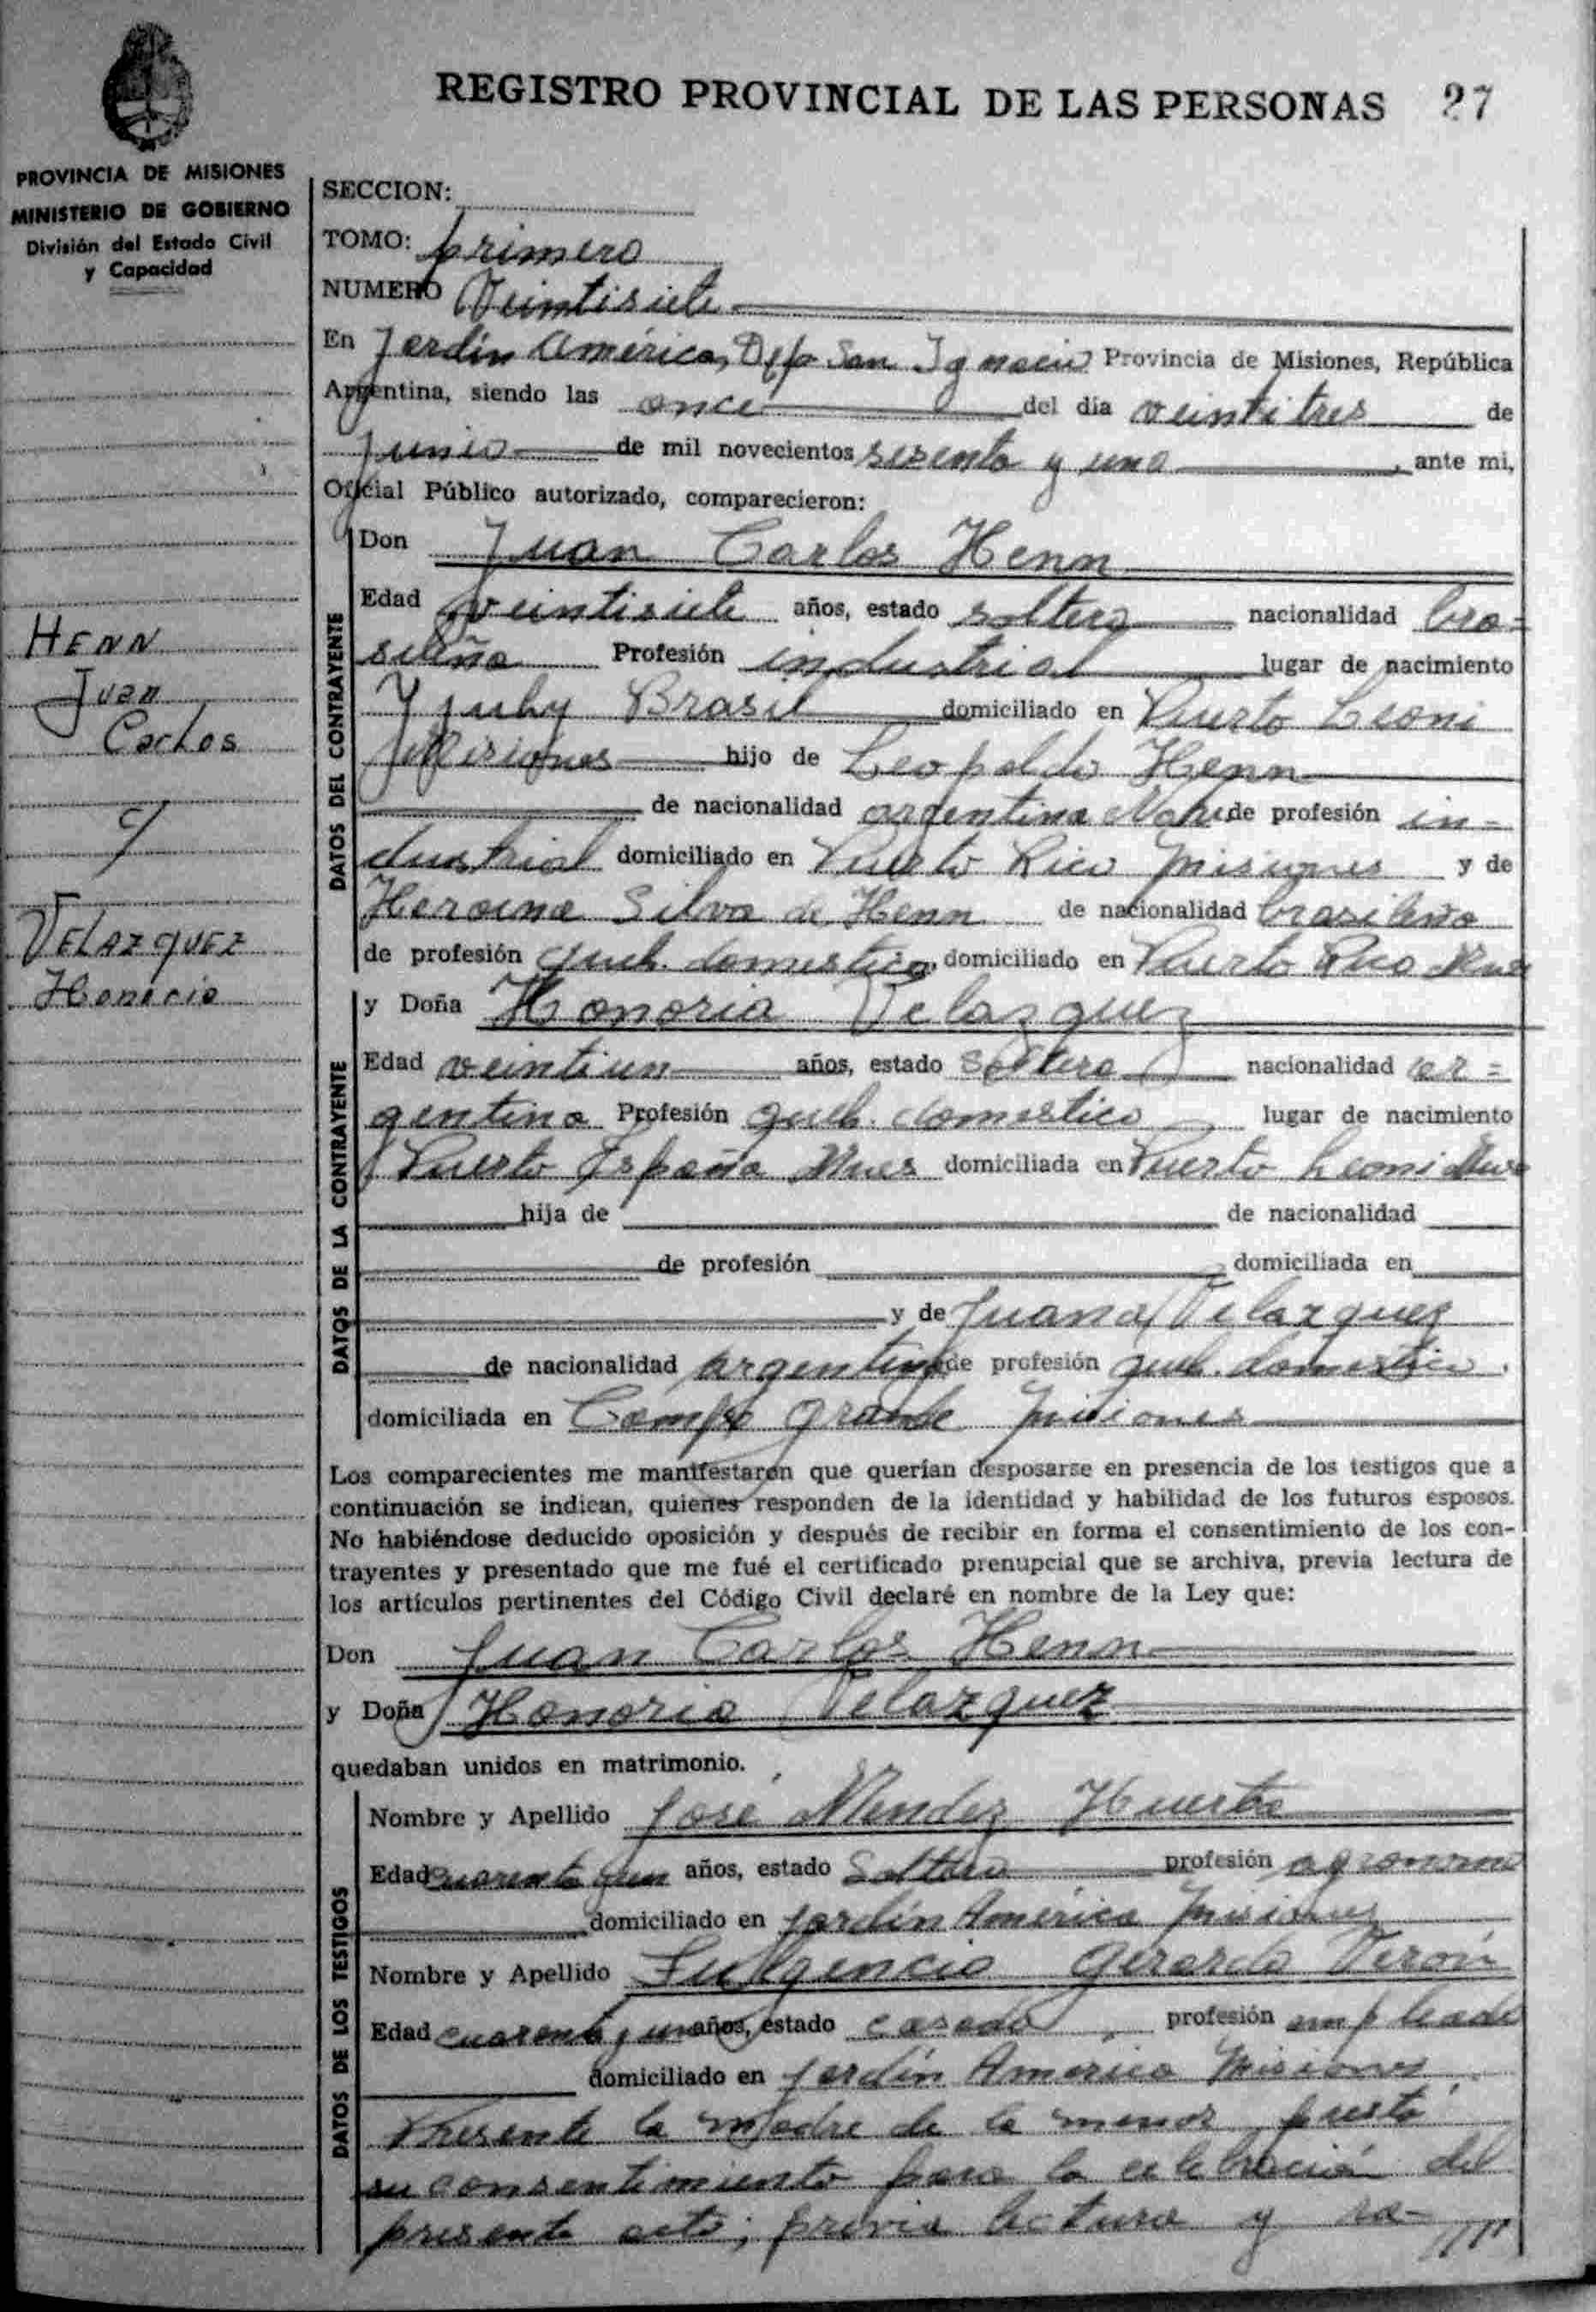 REGISTRO PROVINCIAL DE LAS PERSONAS 27
PROVINCIA DE MISIONES
MINISTERIO DE GOBIERNO
División del Estado Civil
y Capacidad
HENN
Juan
Carlos
c/
VELAZQUEZ
Honoria
SECCION:
TOMO: primero
NUMERO Veintisiete
En Jardín América, Dpto San Ignacio Provincia de Misiones, República
Argentina, siendo las once del día veintitres de
Junio de mil novecientos sesenta y uno, ante mi,
Oficial Público autorizado, comparecieron:
DATOS DEL CONTRAYENTE
Don Juan Carlos Henn
Edad veintisiete años, estado soltero nacionalidad bra=
sileña Profesión industrial lugar de nacimiento
Yjuhy Brasil domiciliado en Puerto Leoni
Misiones hijo de Leopoldo Henn
de nacionalidad argentina de profesión in=
dustrial domiciliado en Puerto Rico Misiones y de
Heroina Silva de Henn de nacionalidad brasileña
de profesión queh. domestico, domiciliado en Puerto Rico Mnes
DATOS DE LA CONTRAYENTE
y Doña Honoria Velazquez
Edad veintiun años, estado soltera nacionalidad ar=
gentina Profesión queh. domestico lugar de nacimiento
Puerto España Mnes domiciliada en Puerto Leoni Mnes
hija de de nacionalidad
de profesión domiciliada en
y de Juana Velazquez
de nacionalidad argentina de profesión queh. domestico,
domiciliada en Campo grande Misiones
Los comparecientes me manifestaron que querían desposarse en presencia de los testigos que a
continuación se indican, quienes responden de la identidad y habilidad de los futuros esposos.
No habiéndose deducido oposición y después de recibir en forma el consentimiento de los con-
trayentes y presentado que me fué el certificado prenupcial que se archiva, previa lectura de
los artículos pertinentes del Código Civil declaré en nombre de la Ley que:
Don Juan Carlos Henn
y Doña Honoria Velazquez
quedaban unidos en matrimonio.
DATOS DE LOS TESTIGOS
Nombre y Apellido José Mendez Huerta
Edad cuarenta y un años, estado Soltero profesión agronomo
domiciliado en Jardín América Misiones
Nombre y Apellido Fulgencio Gerardo Verón
Edad cuarenta y un años, estado casado, profesión empleado
domiciliado en Jardín América Misiones
Presente la madre de la menor presta
su consentimiento para la celebración del
presente acto; previa lectura y ra-